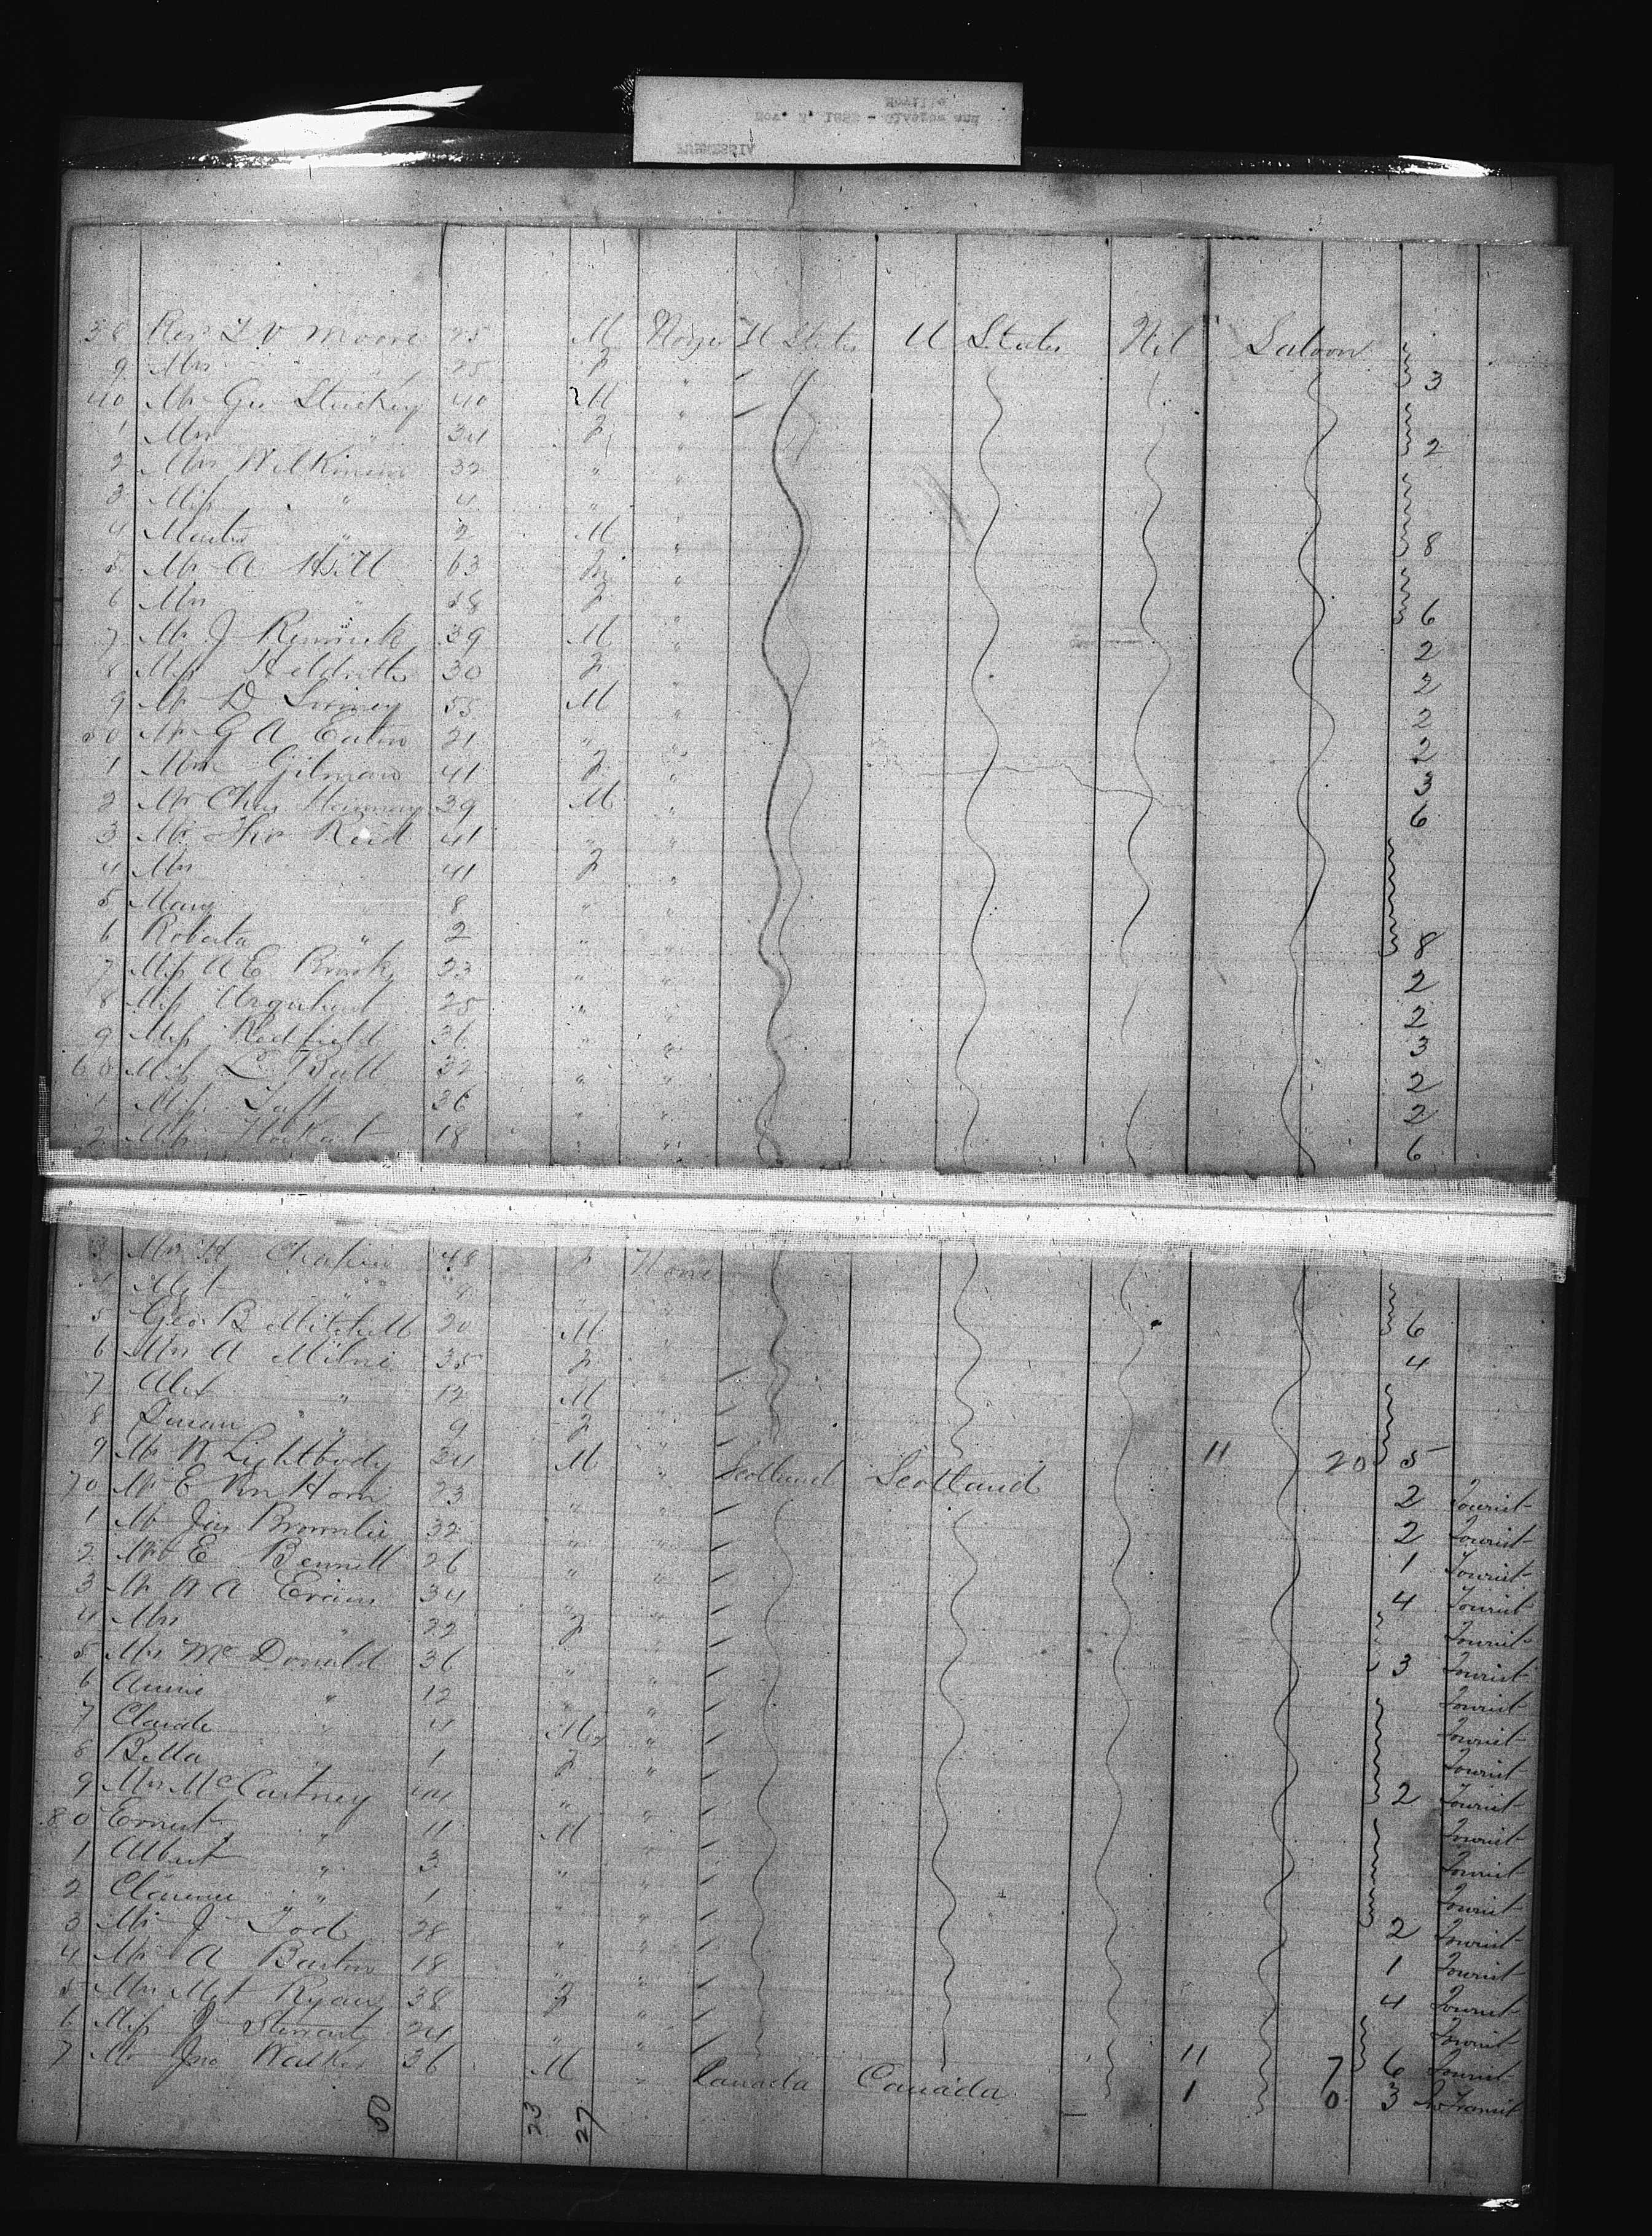 FURNESSIA
Nov. 2, 1885 - Glasgow and
Moville
38 Rev T V Moore 25 M None U States U States Nil Saloon
9 Mrs " 25 F " 3
40 Mr Geo Stuckey 40 M "
1 Mrs " 34 F " 2
2 Mrs Wilkinson 32 " "
3 Miss " 4 " "
4 Master " 2 M " 8
5 Mr A Hill 63 "
6 Mrs " 58 F " 6
7 Mr J Renwick 39 M " 2
8 Miss 30 F " 2
9 Mr D 55 M " 2
50 Mr G A Eaton 21 " " 2
1 Mrs Gilman 41 F " 3
2 Mr Chas 39 M " 6
3 Mr Thos Reid 41 " "
4 Mrs " 41 F "
5 Mary " 8 " "
6 Roberta " 2 " " 8
7 Miss A E 23 " " 2
8 Miss Urquhart 25 " " 2
9 Miss Redfield 36 " " 3
60 Miss L Ball 32 " " 2
1 Miss Taft 26 " " 2
2 Miss 18 " " 6
3 Mrs H Chapin 48 F None
4 " " "
5 Geo B Mitchell 20 M " 6
6 Mrs A Milne 35 F " 4
7 Alex " 12 M "
8 Susan " 9 F "
9 Mr W Lightbody 34 M " Scotland Scotland 11 20 5
70 Mr E Van Horn 23 " " 2 Tourist
1 Mr Jas Brownlie 32 " " 2 Tourist
2 Mr E Bennett 26 " " 1 Tourist
3 Mr W A Evans 34 " " 4 Tourist
4 Mrs " 22 F " Tourist
5 Mrs McDonald 36 " " 3 Tourist
6 Annie " 12 " " Tourist
7 Claude " 4 M " Tourist
8 Bella " 1 F " Tourist
9 Mrs McCartney 44 " " 2 Tourist
80 Ernest " 11 M " Tourist
1 Albert " 3 " " Tourist
2 Clarence " 1 " " Tourist
3 Mr J Tod 28 " " 2 Tourist
4 Mr A Barton 18 " " 1 Tourist
5 Mrs Mgt Ryan 38 F " 4 Tourist
6 Miss J Stewart 24 " " Tourist
7 Mr Jno Walker 36 M " Canada Canada 11 7 6 Tourist
1 0 3 In Transit
50 23 27